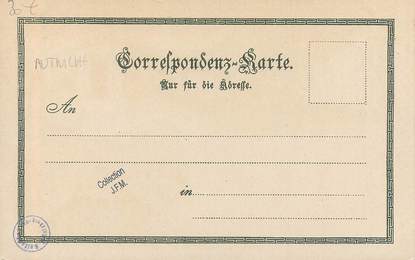 Correspondenz-Karte.
Nur für die Adresse.
An
Collection
J.F.M.
in